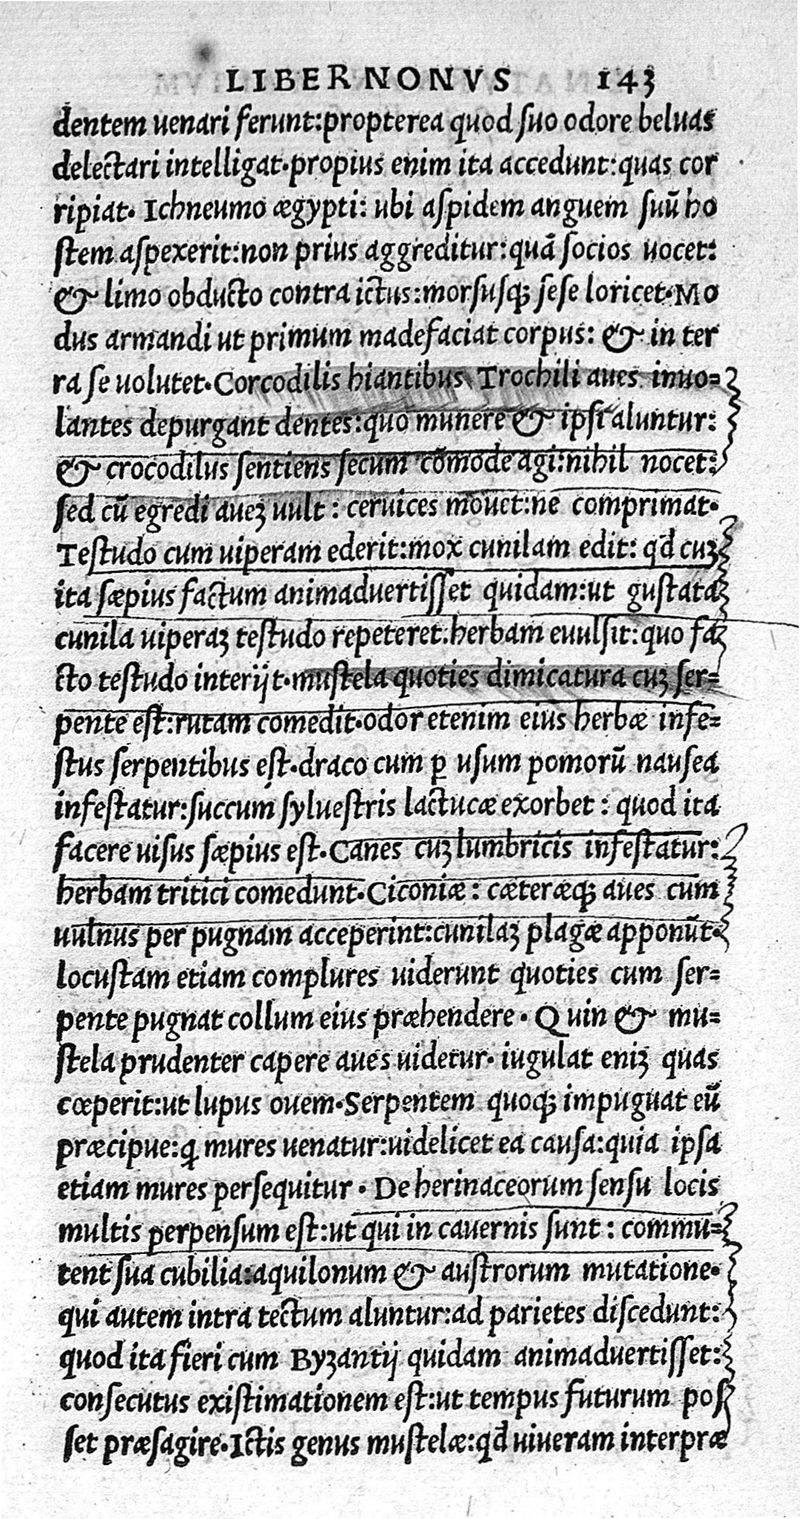 LIBER NONVS 143
dentem uenari ferunt:propterea quod suo odore beluas
delectari intelligat·propius enim ita accedunt:quas cor
ripiat· Ichneumo ægypti: ubi aspidem anguem suũ ho
stem aspexerit:non prius aggreditur:quã socios uocet:
& limo obducto contra ictus:morsusqꝫ sese loricet·Mo
dus armandi ut primum madefaciat corpus: & in ter
ra se uolutet·Corcodilis hiantibus Trochili aues inuo=
lantes depurgant dentes:quo munere & ipsi aluntur:
& crocodilus sentiens secum cõmode agi:nihil nocet:
sed cũ egredi aueꝫ uult: ceruices mouet:ne comprimat·
Testudo cum uiperam ederit:mox cunilam edit: qđ cuꝫ
ita sæpius factum animaduertisset quidam:ut gustata
cunila uiperaꝫ testudo repeteret·herbam euulsit:quo fa
cto testudo interijt·mustela quoties dimicatura cuꝫ ser=
pente est:rutam comedit·odor etenim eius herbæ infe=
stus serpentibus est·draco cum ꝑ usum pomorũ nausea
infestatur:succum syluestris lactucæ exorbet: quod ita
facere uisus sæpius est·Canes cuꝫ lumbricis infestatur:
herbam tritici comedunt·Ciconiæ: cæteræqꝫ aues cum
uulnus per pugnam acceperint:cunilaꝫ plagæ apponũt·
locustam etiam complures uiderunt quoties cum ser=
pente pugnat collum eius præhendere· Quin & mu=
stela prudenter capere aues uidetur· iugulat eniꝫ quas
cœperit:ut lupus ouem·Serpentem quoqꝫ impugnat eũ
præcipue:ꝗ mures uenatur:uidelicet ea causa:quia ipsa
etiam mures persequitur· De herinaceorum sensu locis
multis perpensum est:ut qui in cauernis sunt: commu=
tent sua cubilia:aquilonum & austrorum mutatione·
qui autem intra tectum aluntur:ad parietes discedunt:
quod ita fieri cum Byzantij quidam animaduertisset:
consecutus existimationem est:ut tempus futurum pos
set præsagire·Ictis genus mustelæ:qđ uiueram interpræ